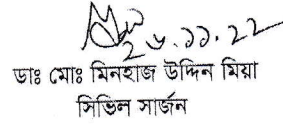 ২৮.১১.২২
ডাঃ মোঃ মিনহাজ উদ্দিন মিয়া
সিভিল সার্জন